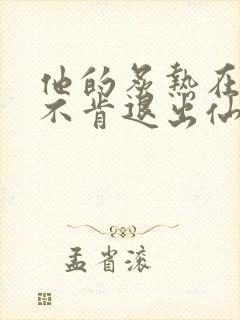 他的炙热在
不肯退出仙
孟省滚